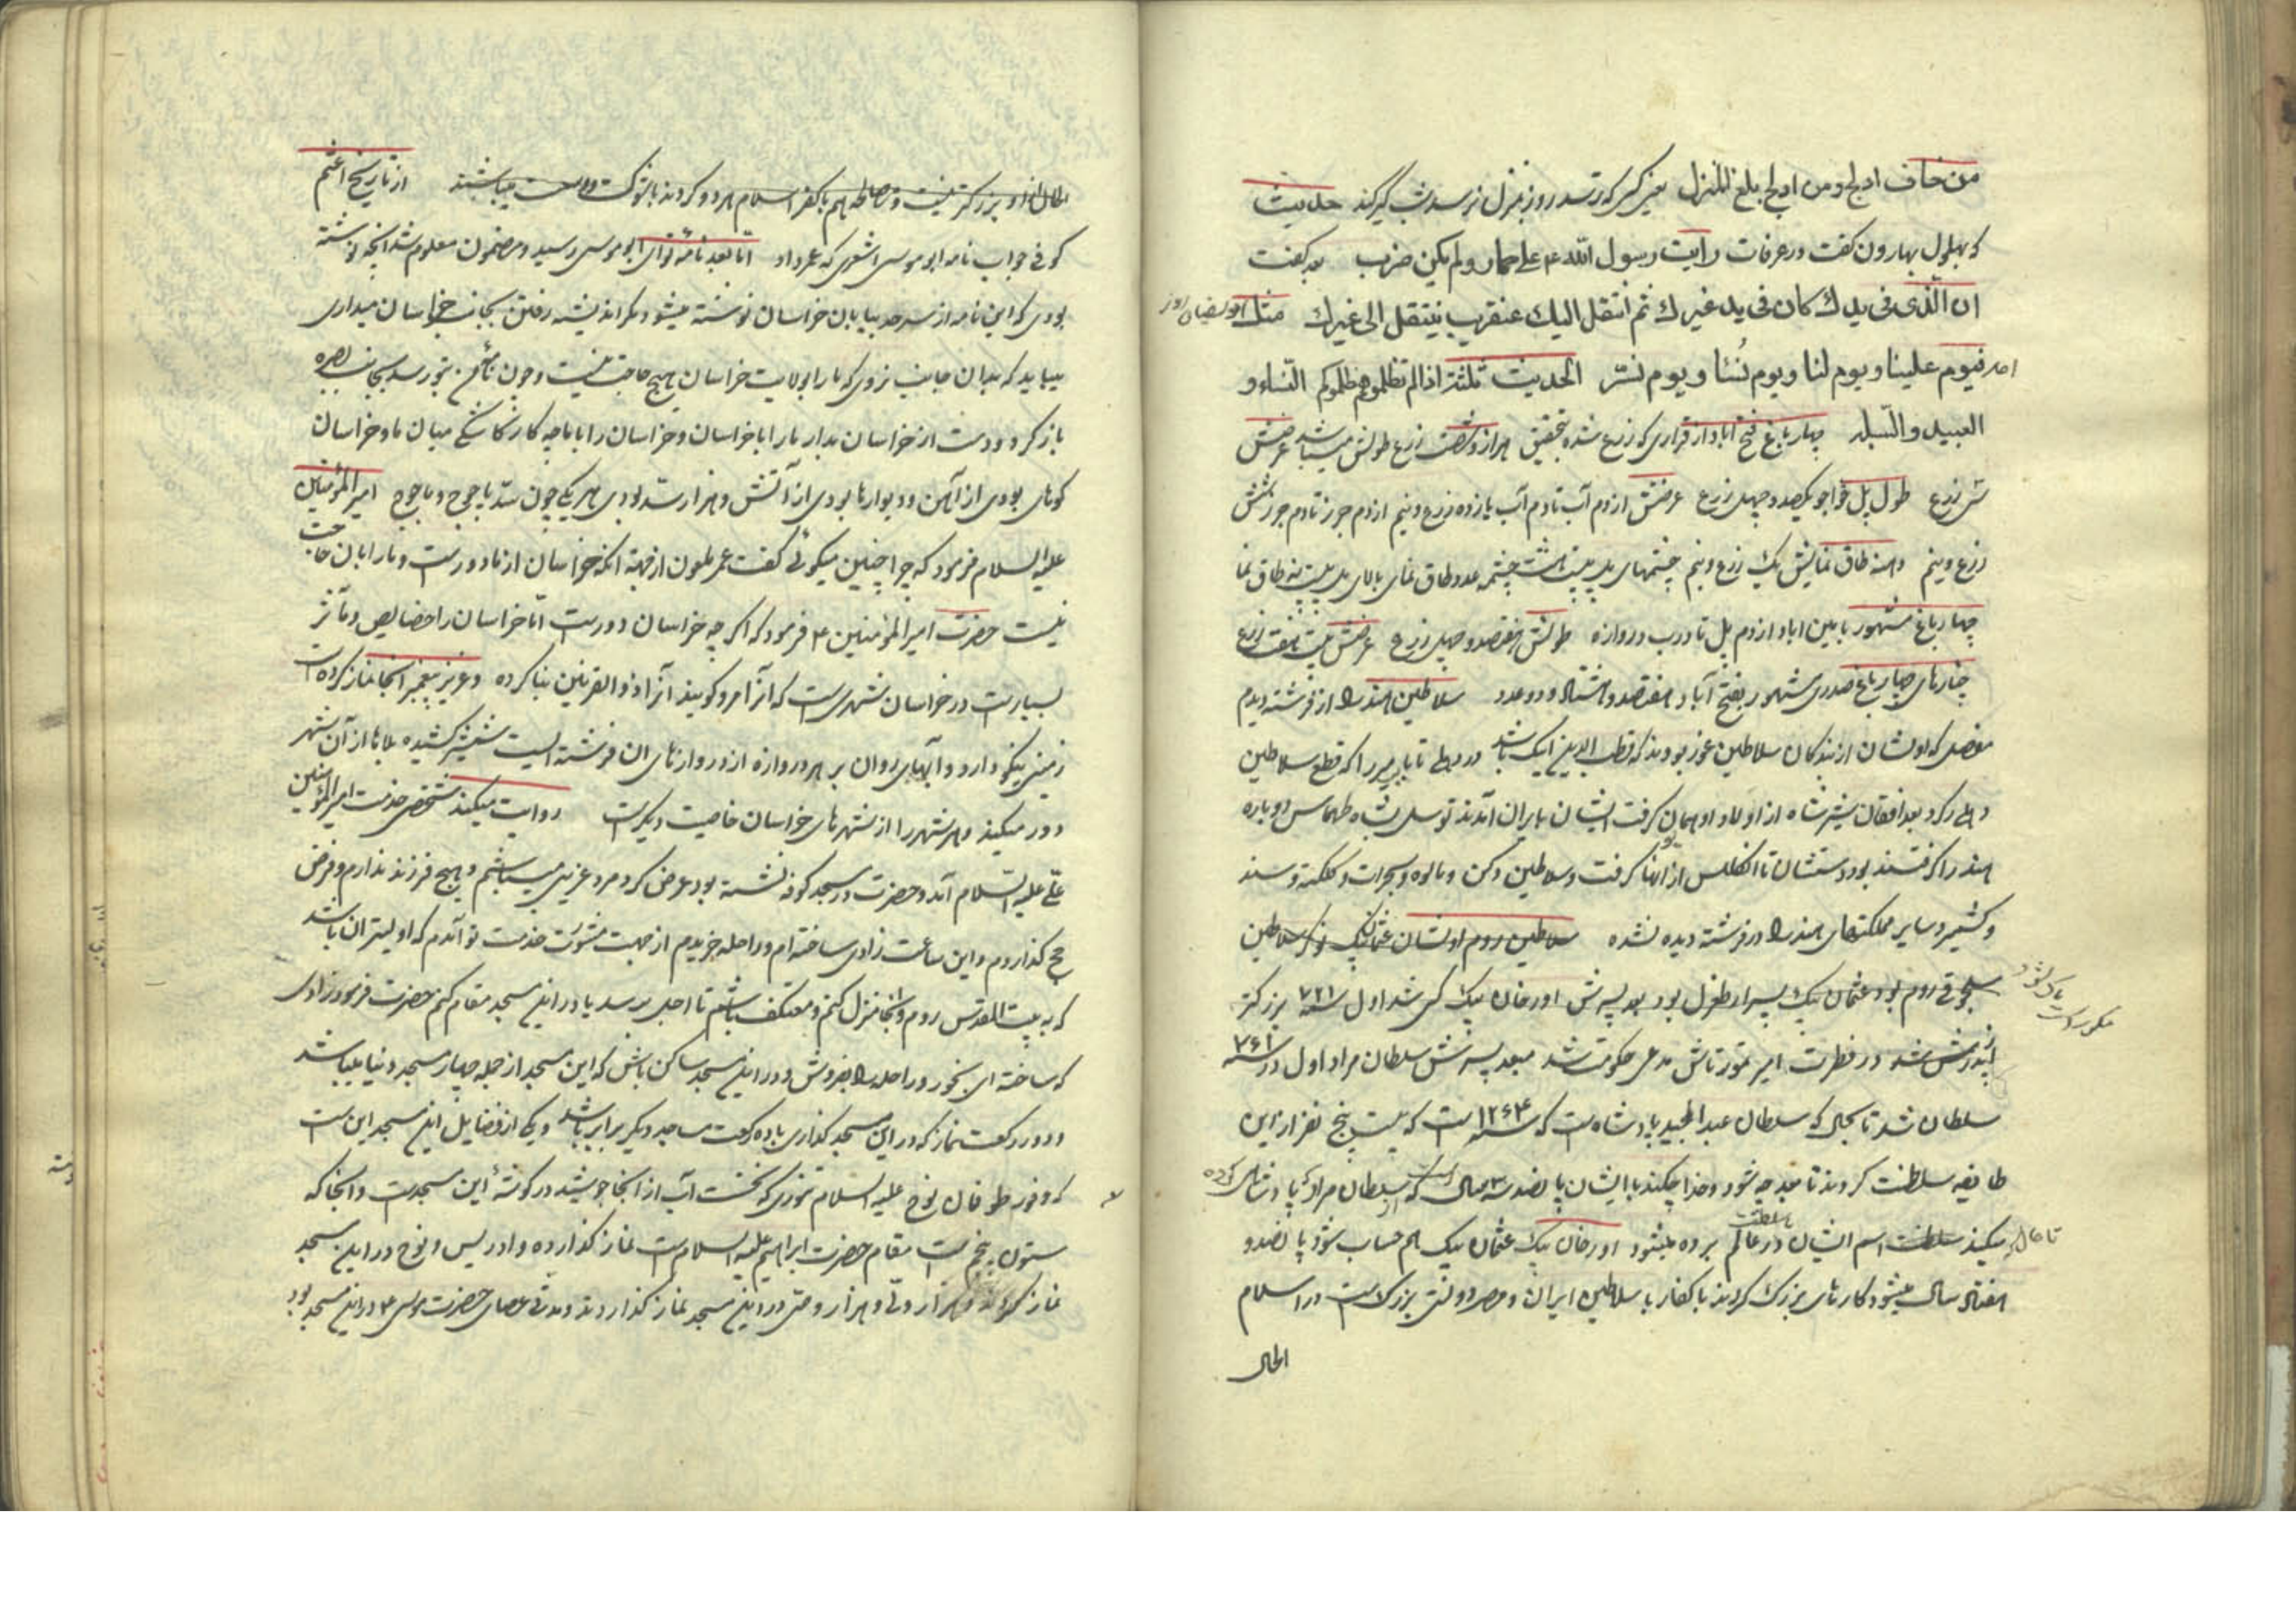 من خاف ادلج ومن ادلج بلغ المنزل یعنی کسی که ترسد روز بمنزل نرسد شب گیر کند حدیث
که بهلول بهارون گفت در عرفات رایت رسول الله ۴ علی حمار ولم یکن ضرب بعد گفت
ان الذی فی یدك کان فی ید غیرك ثم انتقل الیك عنقریب ینتقل الی غیرك مثل
فیوم علینا ویوم لنا ویوم نُساء ویوم نسرّ الحدیث ثلثة اذا لم تظلموهم ظلموکم النساء و
العبید والسّفله چهار باغ فتح اباد از قراری که زرع شده بتحقیق هزار و شصت زرع طولش میباشد عرضش
شی زرع طول پل خواجو یکصد و چهل زرع عرضش ازدم آب تا دم آب یازده زرع ونیم ازدم جرز تا دم جرز شش
زرع ونیم دهنه طاق نمایش یك زرع ونیم چشمهای پل بیست هشت چشمه عدد طاق نمای بالای پل بیست نه طاق نما
چهار باغ مشهور بامین اباد ازدم پل تا درب دروازه طولش هفتصد و چهل زرع عرضش بیست هفت زرع
چنارهای چهار باغ صدری مشهور بفتح آباد هفتصد وهشتاد ودو عدد سلاطین هند را از فرشته دیدم
مفصل که اولشان از بندکان سلاطین غور بودند که قطب الدین ایبک باشد در دهلی تا بابر میرزا که قطع سلاطین
دهلی کرد بعد افغان شیر شاه از اولاد او همان گرفت ایشان بایران آمدند توسل بشاه طهماس دوباره
هند را گرفتند بود دستشان تا انگلیس از آنها گرفت وسلاطین دکن ومالوه وگجرات وکلکته وسند
وکشمیر وسایر مملکتهای هند را در فرشته دیده نشده سلاطین روم اولشان عثمان بیک نوکر سلاطین
سلجوقی روم بود عثمان بیک پسر ارطغرل بود بعد پسرش اورخان بیک کسی شد اول سنه ۷۲۱ بزرگتر
از پدرش شد در فطرت امیر تیمورتاش مدعی حکومت شد بعد پسرش سلطان مراد اول در سنه ۷۶۱
سلطان شد تا بحال که سلطان عبدالمجید پادشاه است که سنه ۱۲۶۴ است که بیست پنج نفر از این
طایفه سلطنت کردند تا بعد چه شود وخدا چکند با ایشان پانصد سه سال است که از سلطان مراد که پادشاهی کرده
میکنند سلطنت اسم ایشان در عالم بسلطنت برده میشود اورخان بیک عثمان بیک هم حساب شود پانصد و
هفتاد سال میشود کارهای بزرگ کردند با کفار با سلاطین ایران ومصر دولتی بزرگ است در اسلام
الحال
الحال از او بزرگتر نیست ومصالحه هم با کفر اسلام هر دو کردند باشوکت ووسعت میباشند از تاریخ اعثم
کوفی جواب نامه ابوموسی اشعری که عمر داد اما بعد نامه تو ای ابوموسی رسید ومضمون معلوم شد آنچه نوشته
بودی که این نامه از سرحد بیابان خراسان نوشته میشود مگر اندیشه رفتن بجانب خراسان میداری
میباید که بدان جانب نروی که مارا بولایت خراسان هیچ حاجت نیست وچون نامه من بتو رسد بجانب بصره
باز گرد ودست از خراسان بدار مارا با خراسان وخراسان را با ما چه کار کاشکی میان ما وخراسان
کوهای بودی از آهن ودیوارها بودی از آتش وهزار سد بودی هر یکی چون سد یاجوج وماجوج امیر المؤمنین
علیه السلام فرمود که چرا چنین میگوئی گفت عمر ملعون از جهة آنکه خراسان از ما دور است ومارا بآن حاجت
نیست حضرت امیر المؤمنین ۴ فرمود که اگر چه خراسان دور است امّا خراسان را خصایص ومآثر
بسیار است در خراسان شهری است که آنرا مرو گویند آنرا ذوالقرنین بنا کرده وعزیر پیغمبر آنجا نماز کرده است
زمینی نیکو دارد وآبهای روان بر هر دروازه از دروازهای ان فرشته ایست شمشیر کشیده بلاها از آن شهر
دور میکند وهر شهر را از شهرهای خراسان خاصیت دیگر است روایت میکند شخصی خدمت امیر المؤمنین
علی علیه السّلام آمد وحضرت در مسجد کوفه نشسته بود عرض کرد مرد عزیبی میباشم وهیچ فرزند ندارم وفرض
حج گذاردم واین ساعت زادی ساخته ام وراحله خریدم از جهت مشورت خدمت تو آمدم که اولیتر ان باشد
که به بیت المقدس روم وآنجا منزل کنم ومعتکف باشم تا اجل برسد یا در این مسجد مقام کنم حضرت فرمود زادی
که ساخته ای بخور وراحله را بفروش ودر این مسجد ساکن باش که این مسجد از جمله چهار مسجد دنیا میباشد
ودو رکعت نماز که در این مسجد گذاری با ده رکعت مساجد دیگر برابر باشد ویکی از فضایل این مسجد این است
که در طوفان نوح علیه السلام تنوری که نخست آب از آنجا جوشید در گوشهٔ این مسجد است وآنجا که
ستون پنجم است مقام حضرت ابراهیم علیه السلام است نماز گذارده وادریس ونوح در این مسجد
نماز کردند وهزار ولّی وهزار وصّی در این مسجد نماز گذاردند ومدتی عصای حضرت موسی ۴ در این مسجد بود